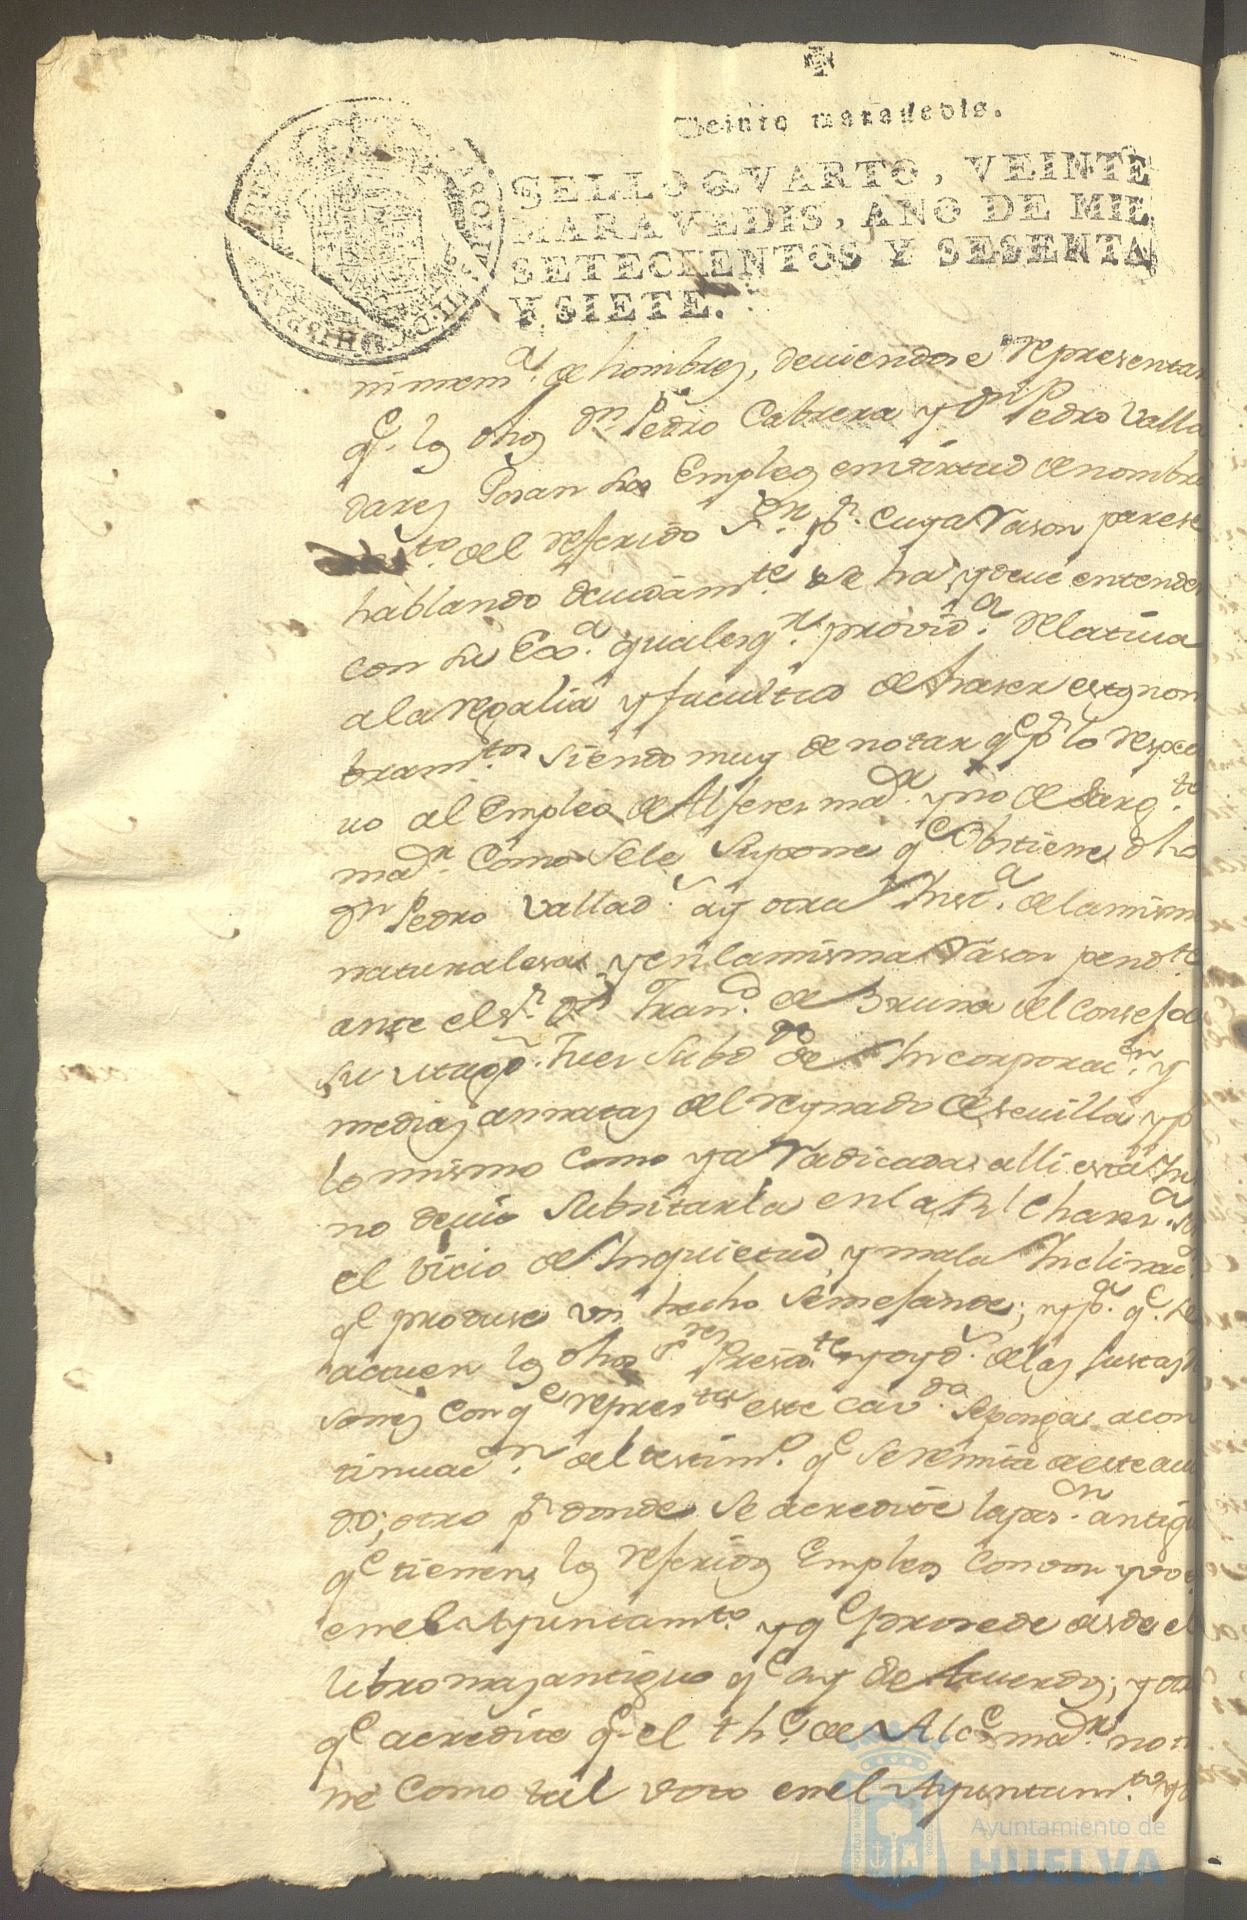 Veinte maravedis.
SELLO QVARTO, VEINTE
MARAVEDIS, AÑO DE MIL
SETECIENTOS Y SESENTA
Y SIETE.
de hombres, deviendose representar
qe. los dhos Dn. Pedro Cabrera y Dn Pedro Valla
dares Gosan sus Empleos en virtud de nombra
to. del referido Sr. cuya rason parese
hablando devidamte. se ha, y deve entender
con su Exa. qualesqa. provida. relativa
a la regalia y facultad de haser estos nom
bramtos. siendo muy de notar qe. pr lo respecti
vo al Empleo de Alferes mar. y no de Sargto
mar. como se le supone qe Obtiene dho
Dn Pedro Vallads. ay otra Insta. de la misma
naturalesa y en la misma rason pendte
ante el Sr. Dn Franco. de Bruna del Consejo de
su Magd. Jues Subdo. de Incorporacn. y
medias annatas del reynado de sevilla y p
lo mismo como ya radicada alli esta In
no devio subsitarla en la Rl Chansa.
el vicio de Inquietud, y mala Inclinac
qe produse un hecho semejante; y pa. qe. se
los dhos Sres Presidte. y oyds. de las justas ra
sones con qe represta este cavdo. se ponga a con
tinuacn. del testimo. qe se remita de este acuer
do; otro pr donde se acredite la posn. antigua
qe tienen los referidos Empleos con vos y voto
en el Ayuntamto. y qe prosede desde el
libro mas antiguo qe ay de Acuerdos; y otro
qe acredite qe. el The. de Alce mar. no tie
ne como tal voto en el Ayuntamto. y
Ayuntamiento de
HUELVA